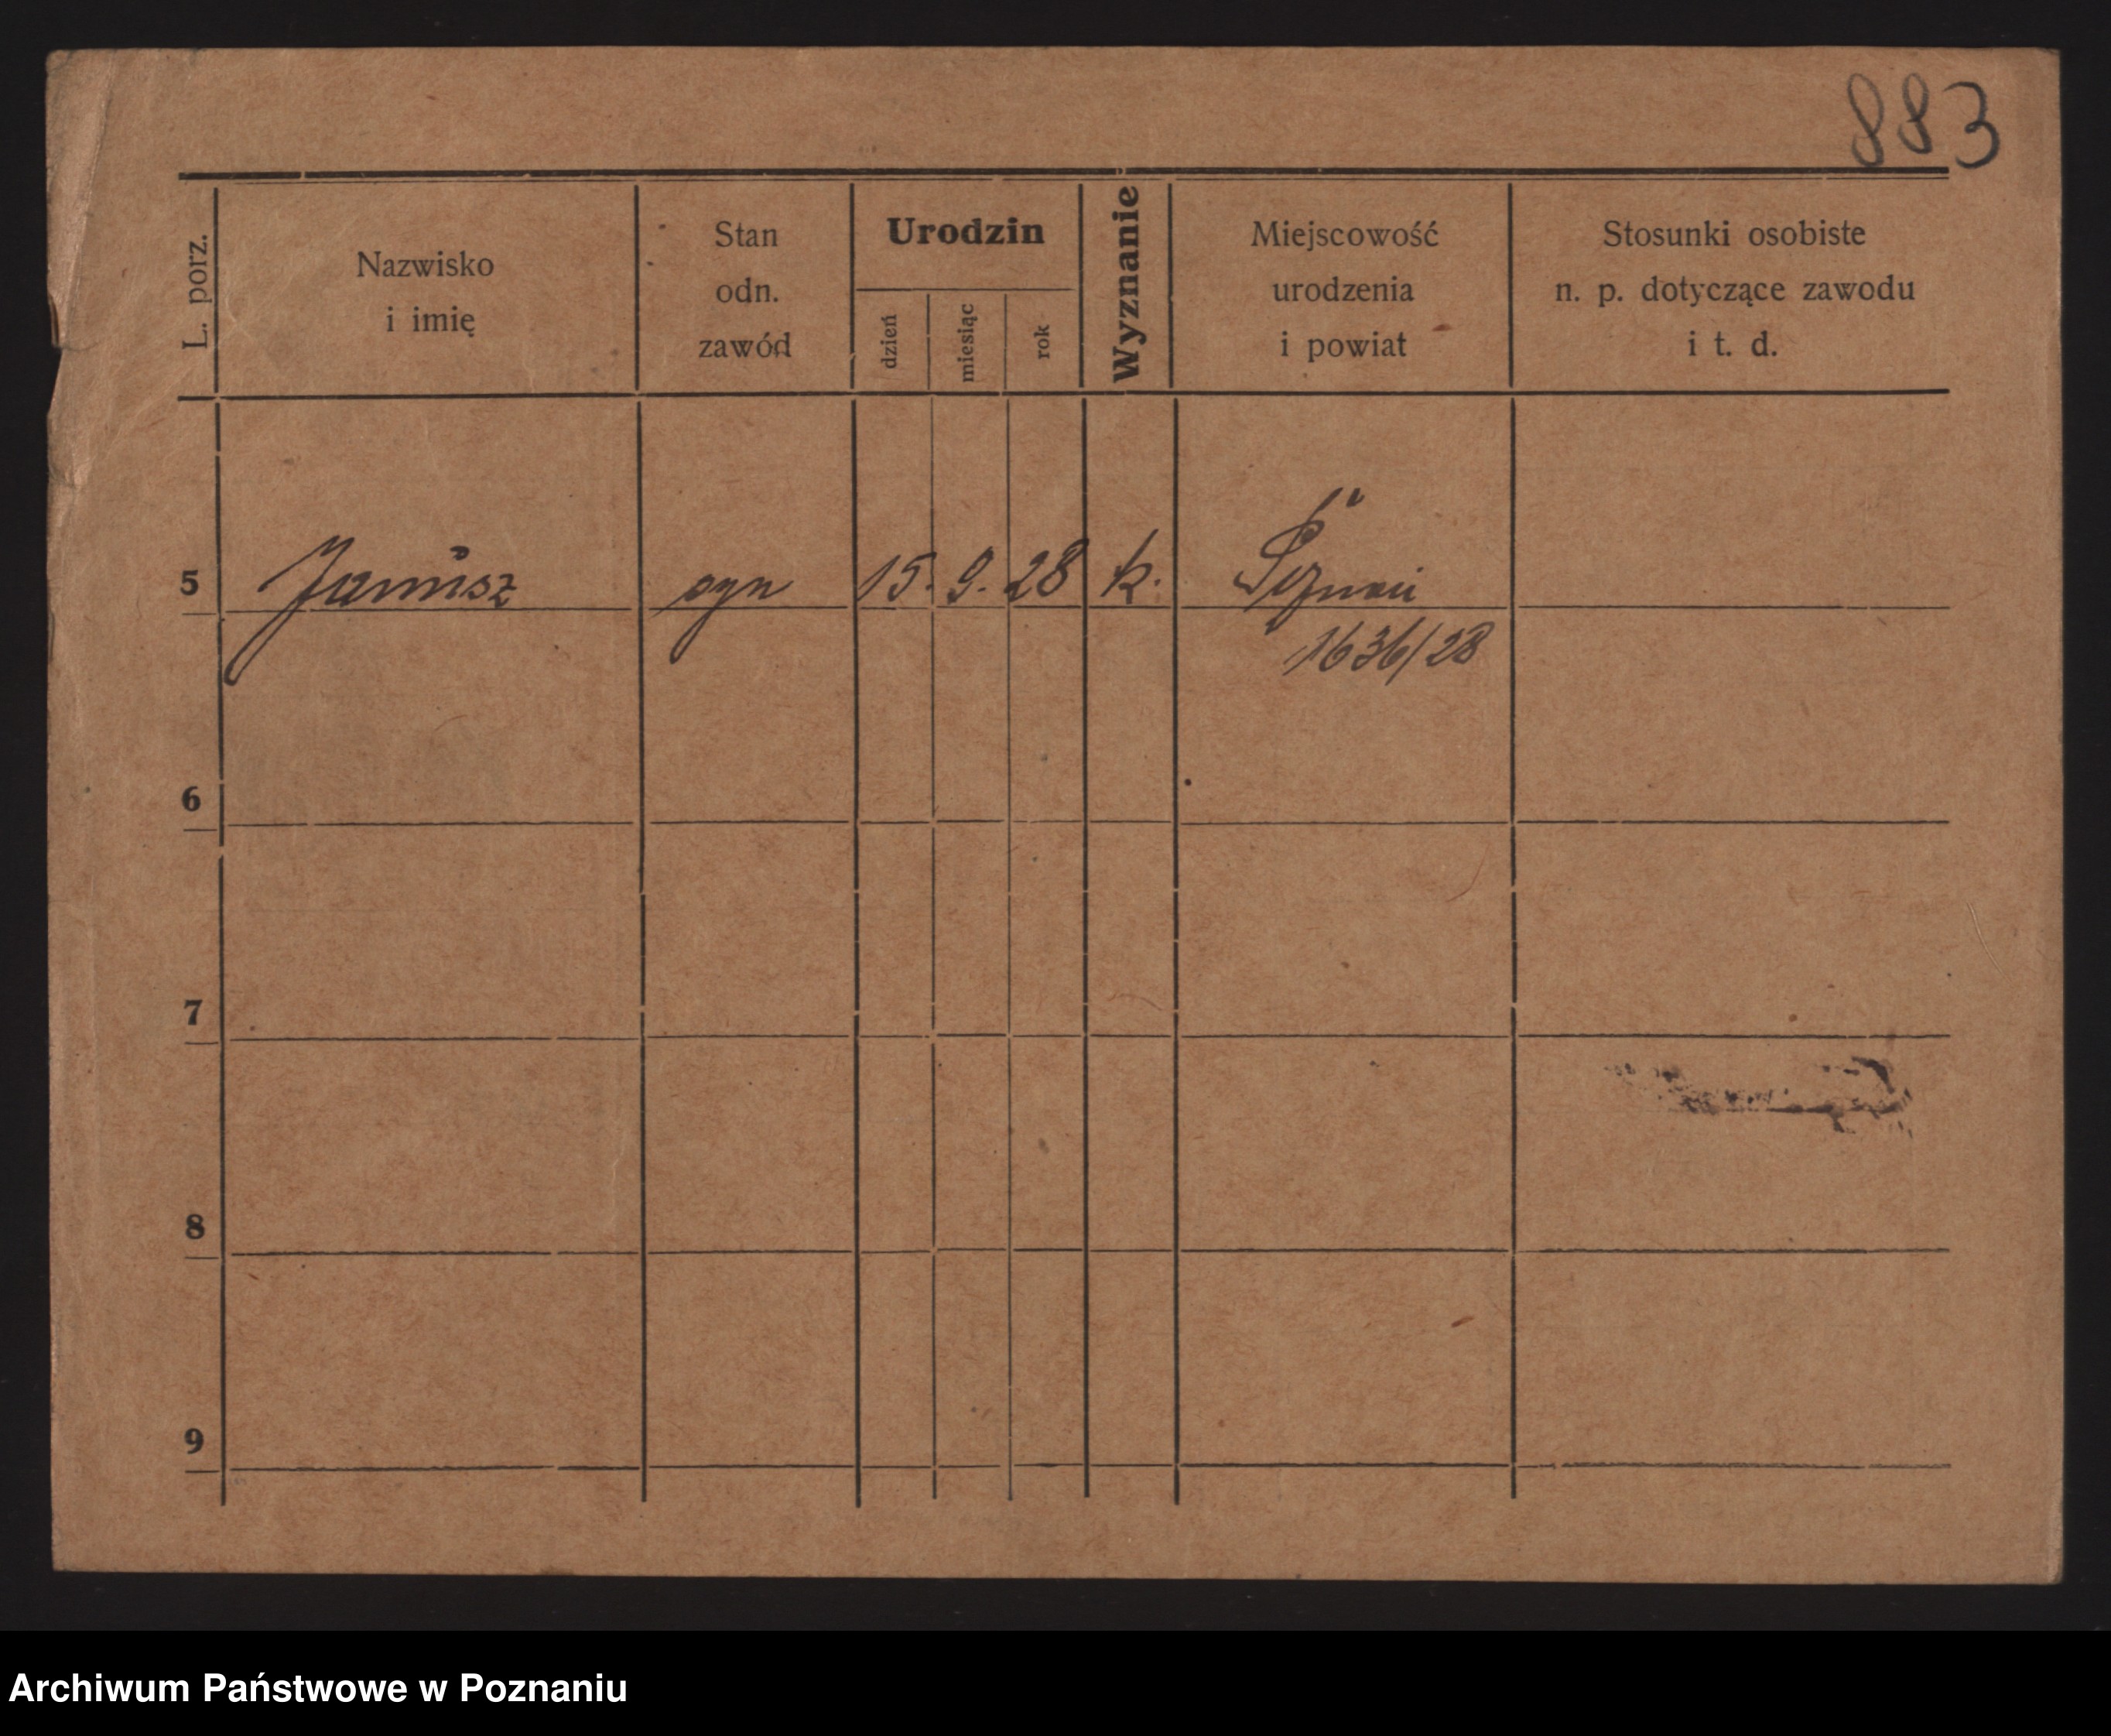 883
L. porz.
Nazwisko
i imię
Stan
odn.
zawód
Urodzin
dzień
miesiąc
rok
Wyznanie
Miejscowość
urodzenia
i powiat
Stosunki osobiste
n. p. dotyczące zawodu
i t. d.
5 Janusz syn 15. 9. 28 k. Poznań
1636/28
6
7
8
9
Archiwum Państwowe w Poznaniu